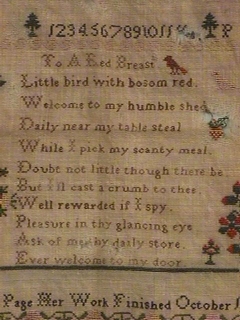 1234567891011 P
To A Red Breast
Little bird with bosom red.
Welcome to my humble shed
Daily near my table steal
While I pick my scanty meal.
Doubt not little though there be
But I'll cast a crumb to thee
Well rewarded if I spy
Pleasure in thy glancing eye
Ask of my daily store.
Ever welcome to my door
Page Her Work Finished October